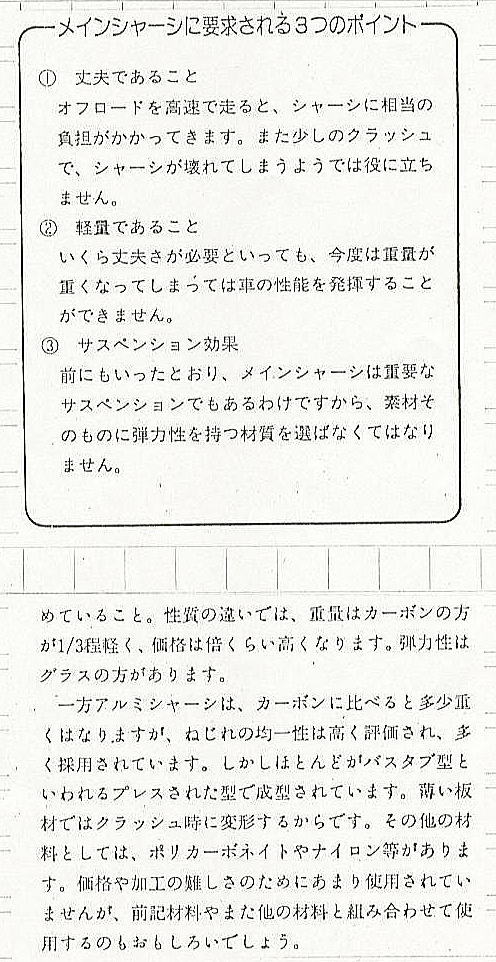 メインシャーシに要求される3つのポイント
① 丈夫であること
オフロードを高速で走ると、シャーシに相当の
負担がかかってきます。また少しのクラッシュ
で、シャーシが壊れてしまうようでは役に立ち
ません。
② 軽量であること
いくら丈夫さが必要といっても、今度は重量が
重くなってしまっては車の性能を発揮すること
ができません。
③ サスペンション効果
前にもいったとおり、メインシャーシは重要な
サスペンションでもあるわけですから、素材そ
のものに弾力性を持つ材質を選ばなくてはなり
ません。
めていること。性質の違いでは、重量はカーボンの方
が1/3程軽く、価格は倍くらい高くなります。弾力性は
グラスの方があります。
一方アルミシャーシは、カーボンに比べると多少重
くはなりますが、ねじれの均一性は高く評価され、多
く採用されています。しかしほとんどがバスタブ型と
いわれるプレスされた型で成型されています。薄い板
材ではクラッシュ時に変形するからです。その他の材
料としては、ポリカーボネイトやナイロン等がありま
す。価格や加工の難しさのためにあまり使用されてい
ませんが、前記材料やまた他の材料と組み合わせて使
用するのもおもしろいでしょう。